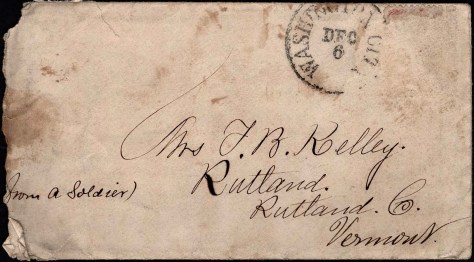 WASHINGTON CITY
DEC
6
Mrs T. B. Kelley.
Rutland.
Rutland. Co.
Vermont.
(from a Soldier)